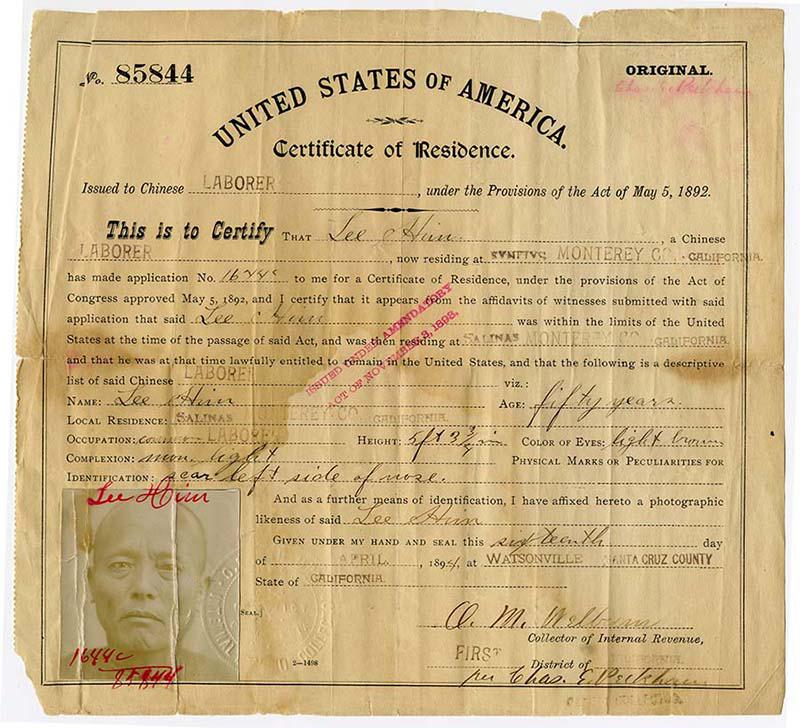 No. 85844
ORIGINAL.
Chas. E. Peckham
UNITED STATES OF AMERICA.
Certificate of Residence.
Issued to Chinese LABORER, under the Provisions of the Act of May 5, 1892.
This is to Certify THAT Lee Him, a Chinese
LABORER, now residing at MONTEREY CO. CALIFORNIA
has made application No. 1644c to me for a Certificate of Residence, under the provisions of the Act of
Congress approved May 5, 1892, and I certify that it appears from the affidavits of witnesses submitted with said
application that said Lee Him was within the limits of the United
States at the time of the passage of said Act, and was then residing at SALINAS MONTEREY CO. CALIFORNIA
and that he was at that time lawfully entitled to remain in the United States, and that the following is a descriptive
list of said Chinese LABORER viz.:
ISSUED UNDER AMENDATORY
ACT OF NOVEMBER 3, 1893.
NAME: Lee Him AGE: fifty years.
LOCAL RESIDENCE: SALINAS MONTEREY CO. CALIFORNIA
OCCUPATION: LABORER HEIGHT: 5 ft 3 3/4 in COLOR OF EYES: light brown
COMPLEXION: light PHYSICAL MARKS OR PECULIARITIES FOR
IDENTIFICATION: scar left side of nose.
And as a further means of identification, I have affixed hereto a photographic
likeness of said Lee Him
GIVEN UNDER MY HAND AND SEAL this sixteenth day
of APRIL, 1894, at WATSONVILLE SANTA CRUZ COUNTY
State of CALIFORNIA.
Lee Him
1644c
85844
[SEAL.]
2—1498
O. M. Welburn
Collector of Internal Revenue,
FIRST District of
per Chas. E. Peckham